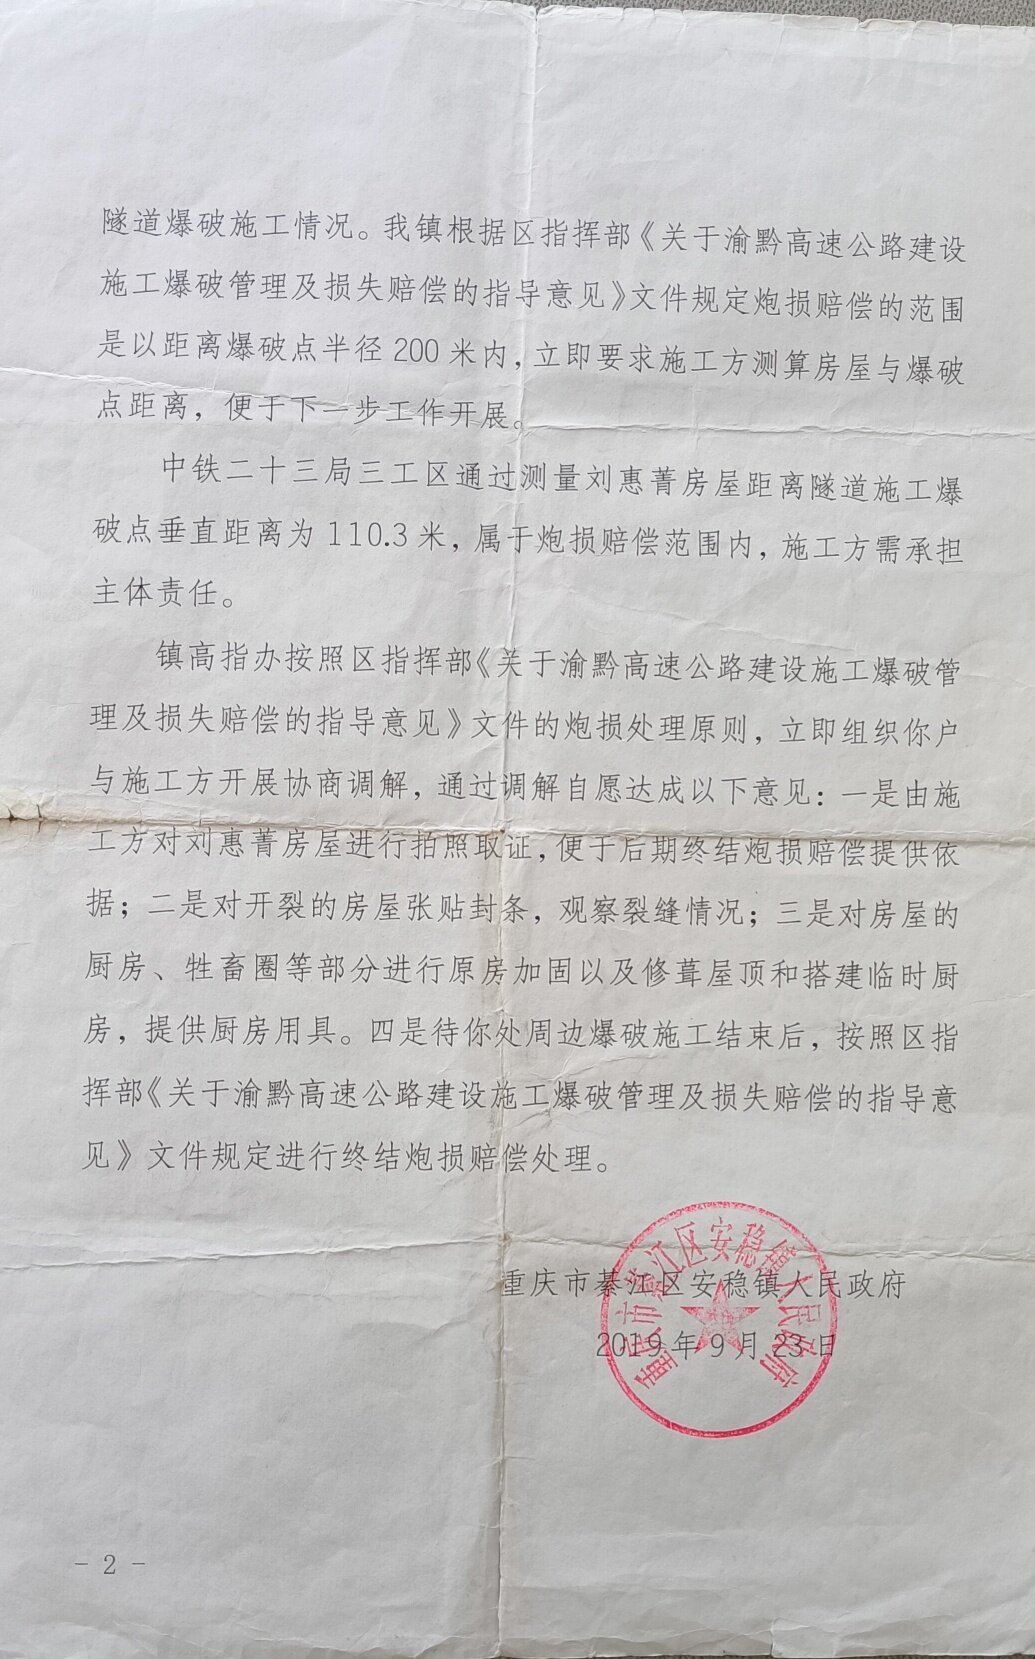 隧道爆破施工情况。我镇根据区指挥部《关于渝黔高速公路建设
施工爆破管理及损失赔偿的指导意见》文件规定炮损赔偿的范围
是以距离爆破点半径 200 米内，立即要求施工方测算房屋与爆破
点距离，便于下一步工作开展。
中铁二十三局三工区通过测量刘惠菁房屋距离隧道施工爆
破点垂直距离为 110.3 米，属于炮损赔偿范围内，施工方需承担
主体责任。
镇高指办按照区指挥部《关于渝黔高速公路建设施工爆破管
理及损失赔偿的指导意见》文件的炮损处理原则，立即组织你户
与施工方开展协商调解，通过调解自愿达成以下意见：一是由施
工方对刘惠菁房屋进行拍照取证，便于后期终结炮损赔偿提供依
据；二是对开裂的房屋张贴封条，观察裂缝情况；三是对房屋的
厨房、牲畜圈等部分进行原房加固以及修葺屋顶和搭建临时厨
房，提供厨房用具。四是待你处周边爆破施工结束后，按照区指
挥部《关于渝黔高速公路建设施工爆破管理及损失赔偿的指导意
见》文件规定进行终结炮损赔偿处理。
重庆市綦江区安稳镇人民政府
重庆市綦江区安稳镇人民政府
2019 年 9 月 23 日
- 2 -